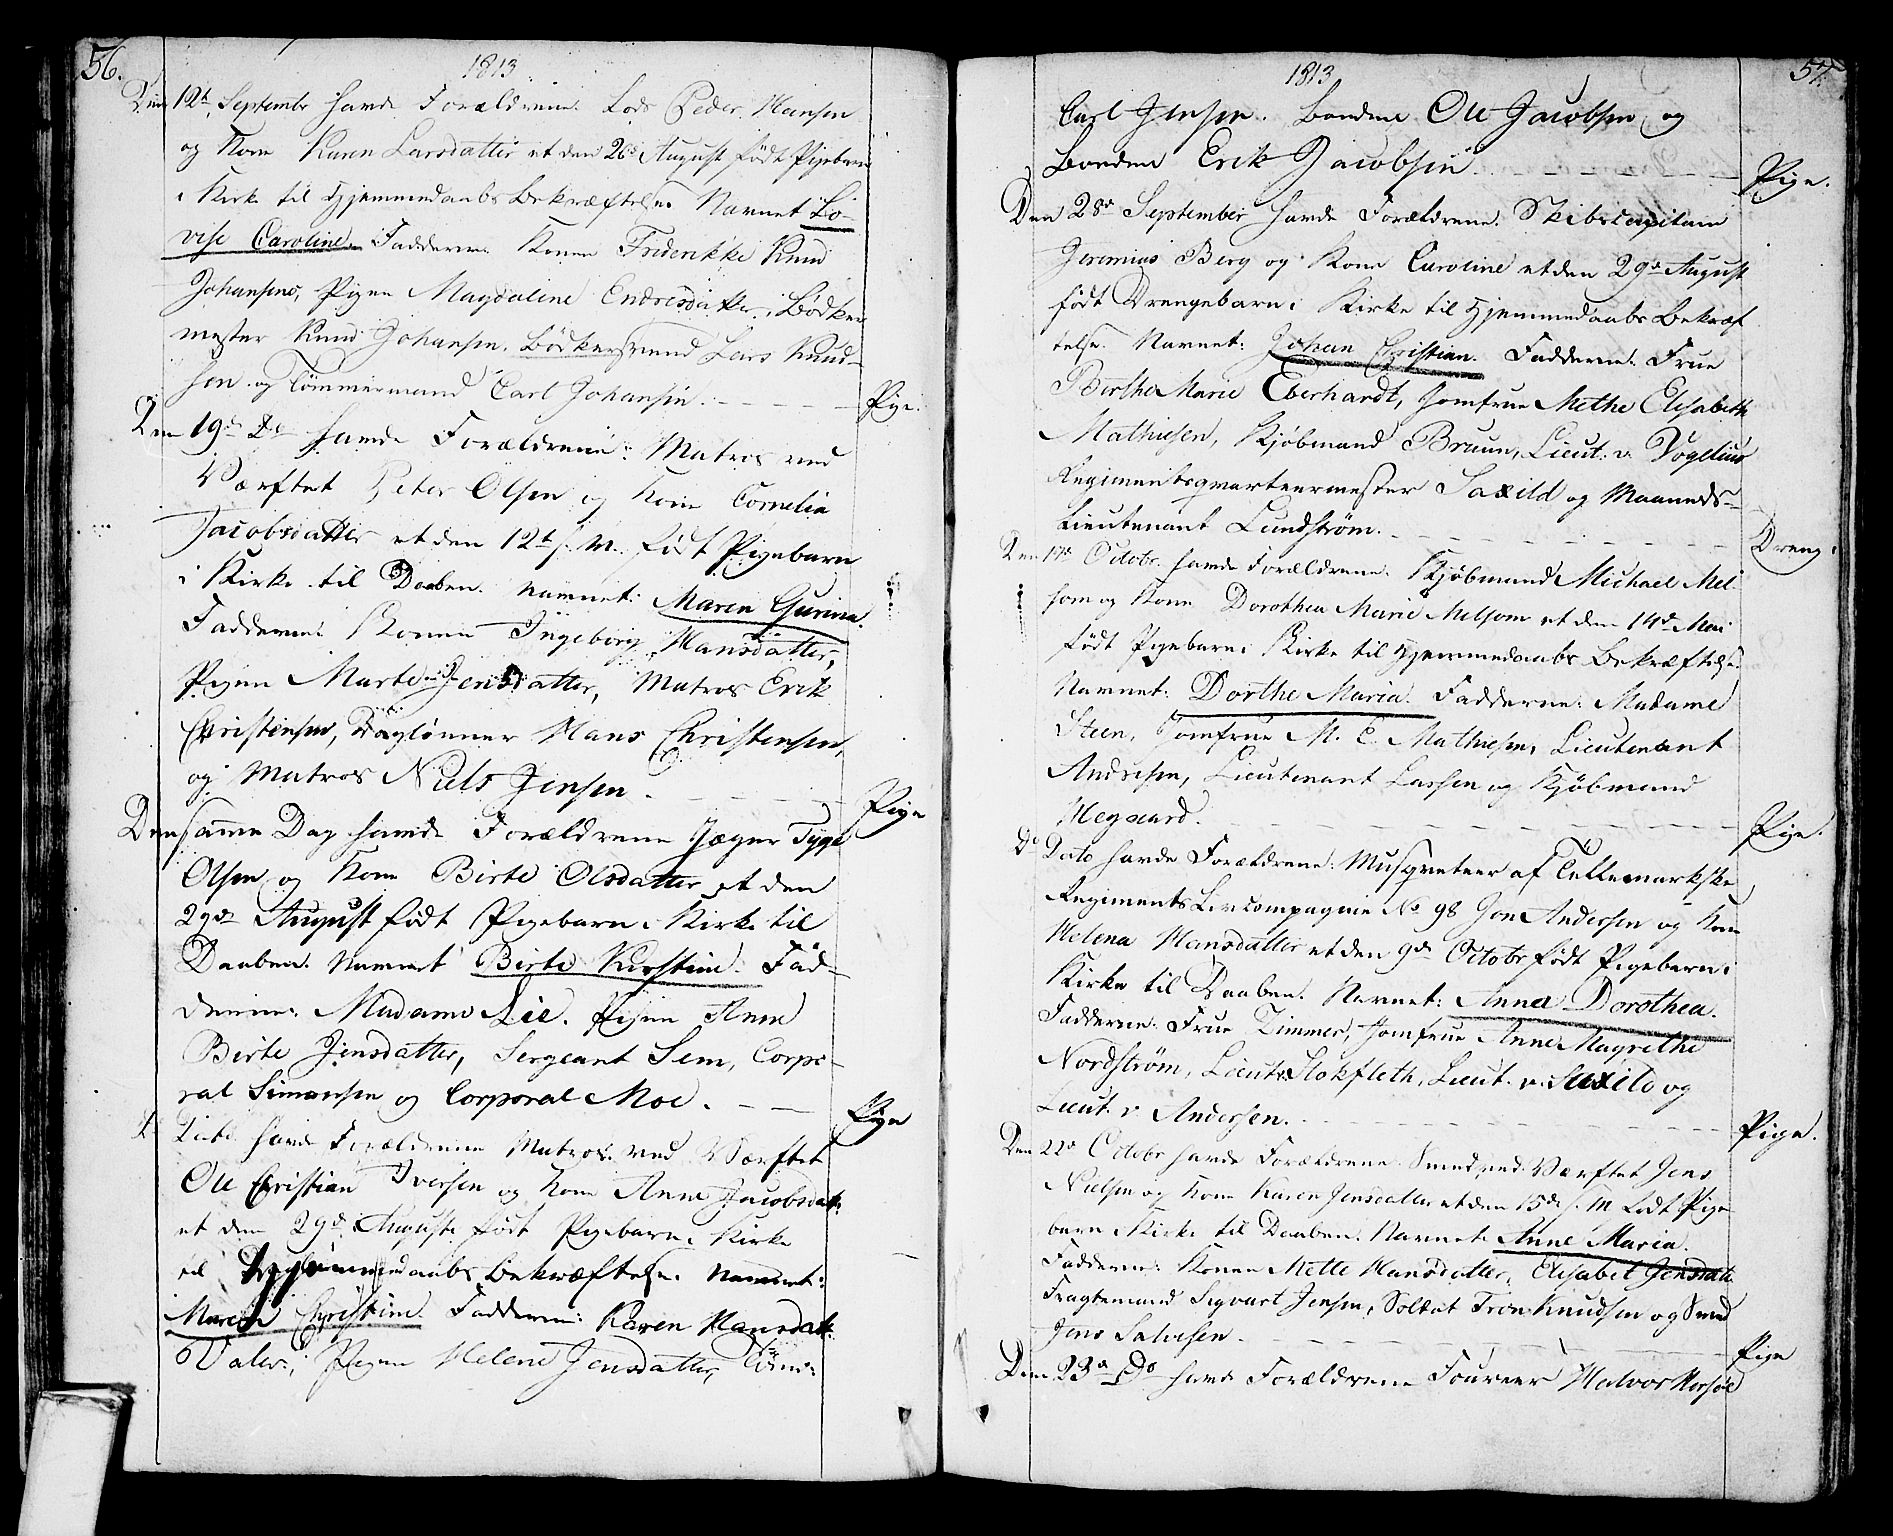 56.
1813
Den 12te Septembr havde Forældrene: Lods Peder Hansen
og Kone Karen Larsdatter et den 26de August født Pigebarn
i Kirke til Hjemmedaabs Bekræftelse Navnet Lo-
vise Caroline. Fadderne: Konen Friderikke Knud
Johansens, Pigen Magdaline Endresdatter, Bødker
mester Knud Johansen. Bødkersvend Lars Knud-
sen og Tømmermand Carl Johansen.
Pige.
Den 19de Do havde Forældrene: Matros ved
Værftet Peter Olsen og Kone Cornelia
Jacobsdatter et den 12te s. M. født Pigebarn
i Kirke til Daaben. Navnet: Maren Gurina.
Fadderne: Konen Ingeborg Hansdatter,
Pigen Marte Jensdatter, Matros Erik
Christensen, Daglønner Hans Christensen,
og Matros Niels Jensen.
Pige
Den samme Dag havde Forældrene Jæger Tyge
Olsen og Kone Birte Olsdatter et den
29de August født Pigebarn i Kirke til
Daaben. Navnet Birte Kirstine. Fad-
derne: Madame Lie. Pigen Anne
Birte Jensdatter, Sergeant Sem, Corpo-
ral Simonsen og Corporal Moe.
Pige
Dito havde Forældrene Matros ved Værftet
Ole Christian Iversen og Kone Anne Jacobsdatt:
et den 29de August født Pigebarn i Kirke
til Hjemmedaabs Bekræftelse. Navnet:
Maren Christine. Fadderne: Karen Hansdatt:
Valer, Pigen Helene Jensdatter, Tøm-
57.
1813
Carl Jensen. Bonden Ole Jacobsen og
Bonden Erik Jacobsen.
Pige.
Den 28de September havde Forældrene. Skibscapitain
Jeremias Berg og Kone Caroline et den 29de August
født Drengebarn i Kirke til Hjemmedaabs Bekræf
telse. Navnet: Johan Christian. Fadderne: Frue
Birthe Marie Eberhardt, Jomfrue Methe Elisabeth
Mathiesen, Kjøbmand Bruun, Lieut: v. Vogelius
Regimentsqvarteermester Saxild og Maaneds-
Lieutenant Lundstrøm.
Dreng:
Den 17de Octobr havde Forældrene. Kjøbmand Michael Mel
som og Kone Dorothea Marie Melsom et den 14de Mai
født Pigebarn i Kirke til Hjemmedaabs Bekræftelse
Navnet: Dorthe Maria. Fadderne: Madame
Steen, Jomfrue M. E. Mathiesen, Lieutenant
Andresen, Lieutenant Lassen og Kjøbmand
Megaard.
Pige.
Do Dato havde Forældrene: Musqveteer af Tellemarkske
Regiments Livcompagnie No 98 Jon Andersen og Kone
Helena Hansdatter et den 9de Octobr født Pigebarn i
Kirke til Daaben. Navnet: Anna Dorothea.
Fadderne: Frue Zimmer, Jomfrue Anne Magrethe
Nordstrøm, Lieut: Stokfleth, Lieut. v. Saxild og
Lieut. v Andersen.
Pige.
Den 22de Octobr havde Forældrene: Smed ved Værftet Jens
Nielsen og Kone Karen Jensdatter et den 15de s. M født Pige
barn i Kirke til Daaben. Navnet Anne Maria.
Fadderne: Konen Mette Hansdatter, Elisabet Jensdatt:
Fragtemand Sigvart Jensen, Soldat Tron Knudsen og Smed
Jens Salvesen.
Pige
Den 23de Do havde Forældrene Foureer Halvor